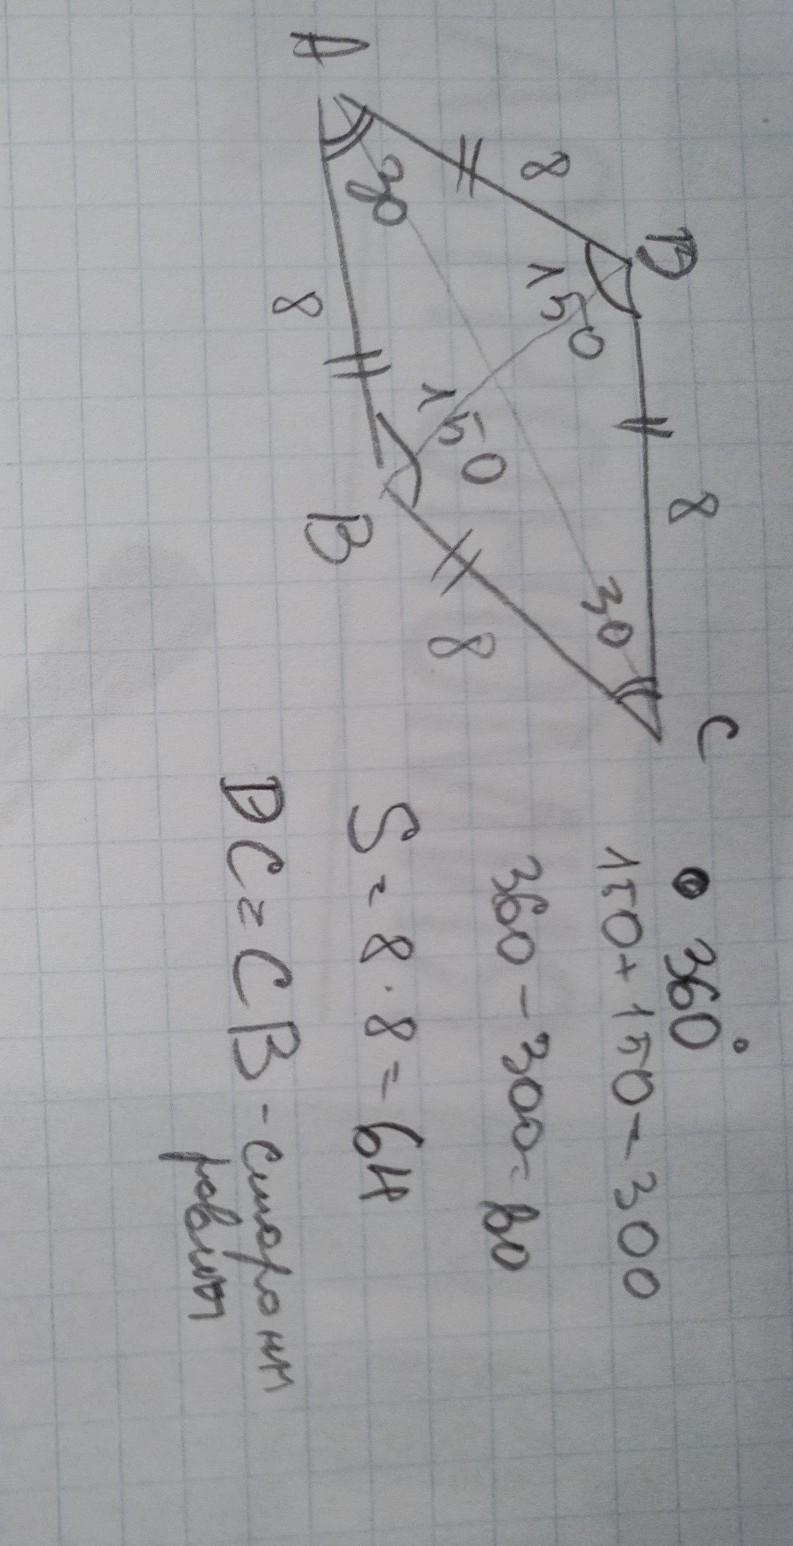 A
8
D
30
150
8
8
150
30
B
8
C
360°
150+150=300
360-300=60
S=8·8=64
DC=CB-стороны
равны